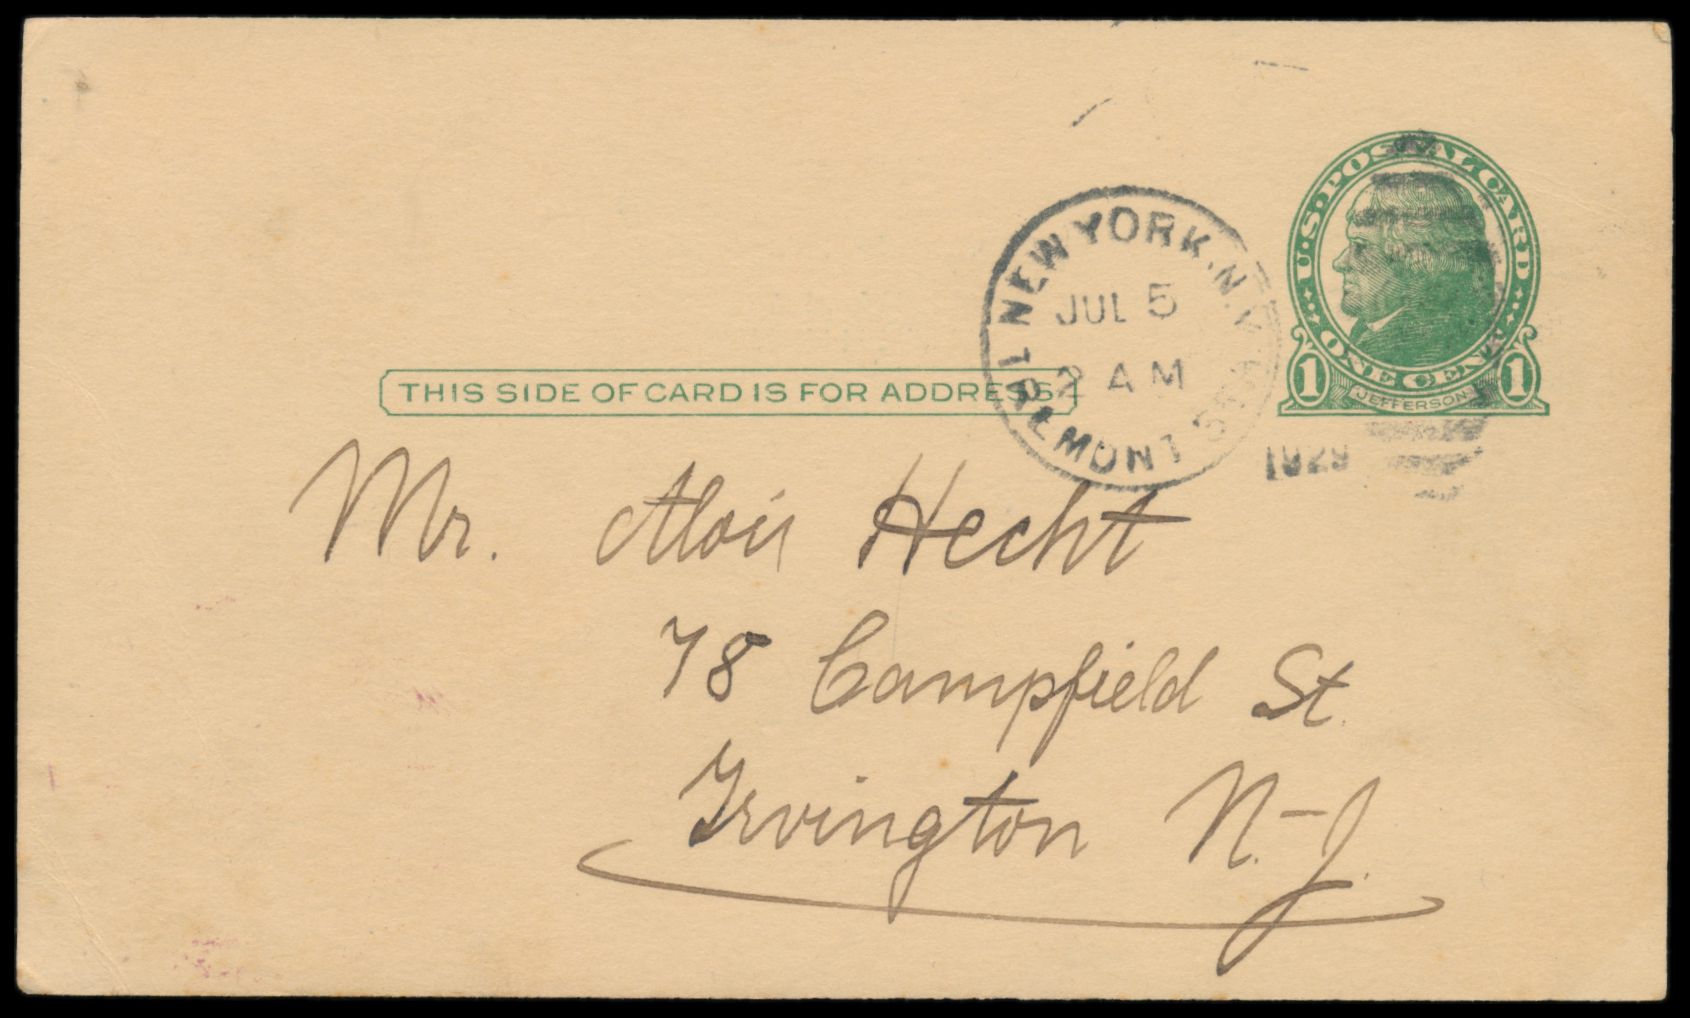 U.S. POSTAL CARD
ONE CENT
1 1
JEFFERSON
NEW YORK, N.Y.
JUL 5
2 AM
TREMONT STA.
1929
THIS SIDE OF CARD IS FOR ADDRESS
Mr. Alois Hecht
78 Campfield St.
Irvington N-J.